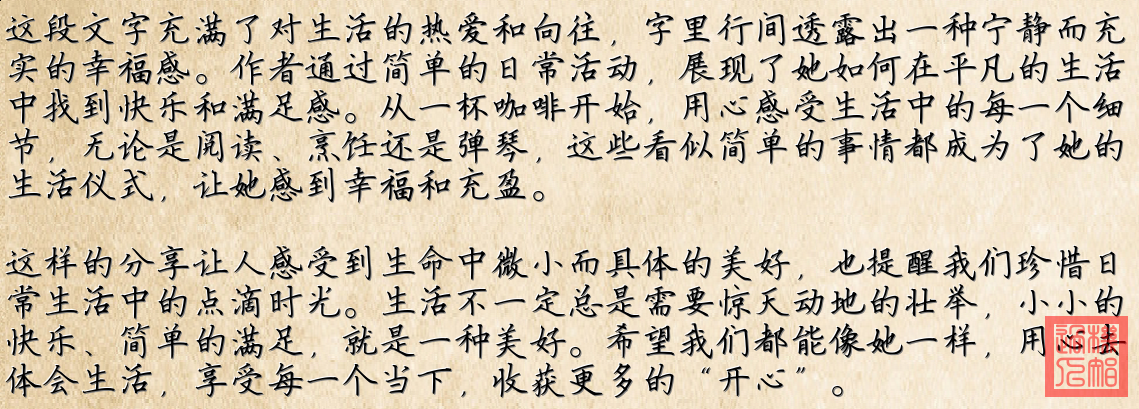 这段文字充满了对生活的热爱和向往，字里行间透露出一种宁静而充
实的幸福感。作者通过简单的日常活动，展现了她如何在平凡的生活
中找到快乐和满足感。从一杯咖啡开始，用心感受生活中的每一个细
节，无论是阅读、烹饪还是弹琴，这些看似简单的事情都成为了她的
生活仪式，让她感到幸福和充盈。
这样的分享让人感受到生命中微小而具体的美好，也提醒我们珍惜日
常生活中的点滴时光。生活不一定总是需要惊天动地的壮举，小小的
快乐、简单的满足，就是一种美好。希望我们都能像她一样，用心去
体会生活，享受每一个当下，收获更多的“开心”。